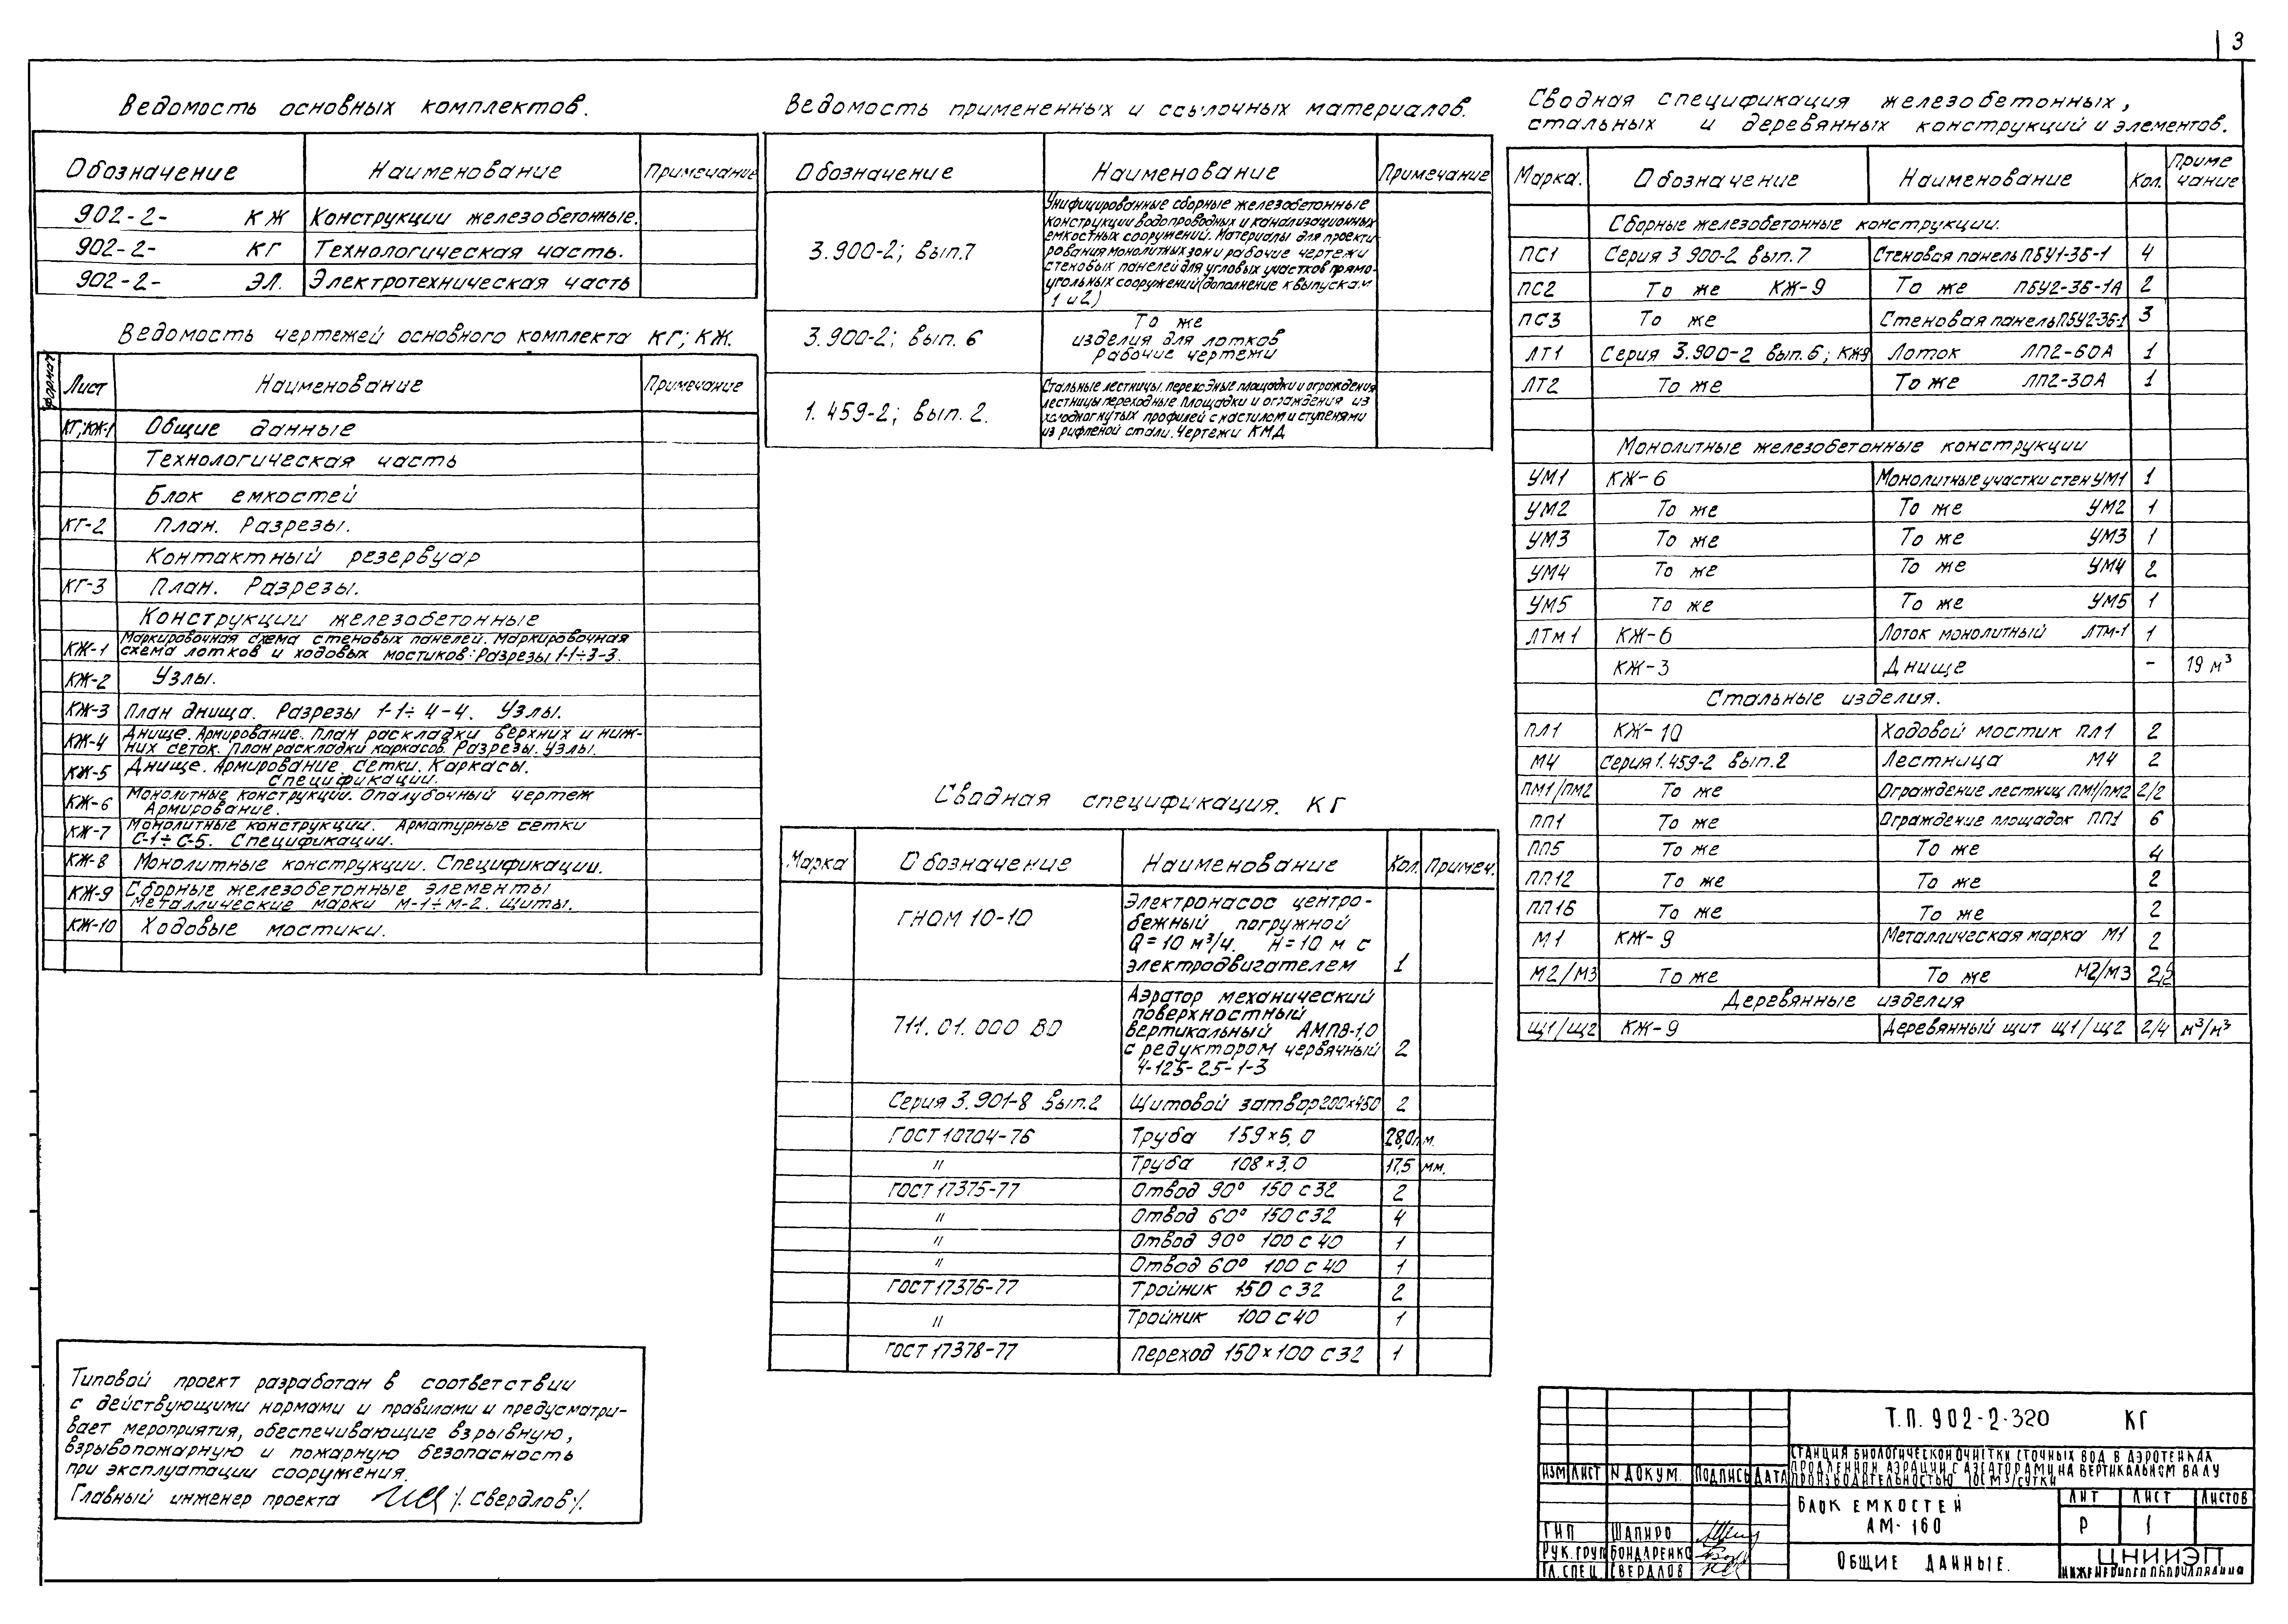 3
Ведомость основных комплектов.
Обозначение Наименование Примечание
902-2- КЖ Конструкции железобетонные.
902-2- КГ Технологическая часть.
902-2- ЭЛ. Электротехническая часть
Ведомость чертежей основного комплекта КГ; КЖ.
Формат Лист Наименование Примечание
КГ;КЖ-1 Общие данные
Технологическая часть
Блок емкостей
КГ-2 План. Разрезы.
Контактный резервуар
КГ-3 План. Разрезы.
Конструкции железобетонные
КЖ-1 Маркировочная схема стеновых панелей. Маркировочная
схема лотков и ходовых мостиков. Разрезы 1-1÷3-3.
КЖ-2 Узлы.
КЖ-3 План днища. Разрезы 1-1÷4-4. Узлы.
КЖ-4 Днище. Армирование. План раскладки верхних и ниж-
них сеток. План раскладки каркасов. Разрезы. Узлы.
КЖ-5 Днище. Армирование. Сетки. Каркасы.
Спецификации.
КЖ-6 Монолитные конструкции. Опалубочный чертеж
Армирование.
КЖ-7 Монолитные конструкции. Арматурные сетки
С-1÷С-5. Спецификации.
КЖ-8 Монолитные конструкции. Спецификации.
КЖ-9 Сборные железобетонные элементы
Металлические марки М-1÷М-2. Щиты.
КЖ-10 Ходовые мостики.
Типовой проект разработан в соответствии
с действующими нормами и правилами и предусматри-
вает мероприятия, обеспечивающие взрывную,
взрывопожарную и пожарную безопасность
при эксплуатации сооружения.
Главный инженер проекта /. Свердлов /.
Ведомость примененных и ссылочных материалов.
Обозначение Наименование Примечание
3.900-2; вып.7 Унифицированные сборные железобетонные
конструкции водопроводных и канализационных
емкостных сооружений. Материалы для проекти-
рования монолитных зон и рабочие чертежи
стеновых панелей для угловых участков прямо-
угольных сооружений (дополнение к выпускам
1 и 2)
3.900-2; вып. 6 То же
изделия для лотков
рабочие чертежи
1. 459-2; вып. 2. Стальные лестницы, переходные площадки и ограждения
лестницы переходные площадки и ограждения из
холодногнутых профилей с настилом и ступенями
из рифленой стали. Чертежи КМД
Сводная спецификация. КГ
Марка Обозначение Наименование Кол. Примеч.
ГНОМ 10-10 Электронасос центро-
бежный погружной
Q = 10 м³/ч. Н = 10 м с
электродвигателем 1
711. 01. 000 ВО Аэратор механический
поверхностный
вертикальный АМПВ-1,0
с редуктором червячный 2
Ч-125-25-1-3
Серия 3.901-8 вып.2 Щитовой затвор 200×450 2
ГОСТ 10704-76 Труба 159×5,0 28,0 п.м.
" Труба 108×3,0 17,5 мм.
ГОСТ 17375-77 Отвод 90° 150 с 32 2
" Отвод 60° 150 с 32 4
" Отвод 90° 100 с 40 1
" Отвод 60° 100 с 40 1
ГОСТ 17376-77 Тройник 150 с 32 2
" Тройник 100 с 40 1
ГОСТ 17378-77 Переход 150×100 с 32 1
Сводная спецификация железобетонных,
стальных и деревянных конструкций и элементов.
Марка. Обозначение Наименование Кол. Приме
чание
Сборные железобетонные конструкции.
ПС1 Серия 3 900-2 вып. 7 Стеновая панель ПБУ1-36-1 4
ПС2 То же КЖ-9 То же ПБУ2-36-1А 2
ПС3 То же Стеновая панель ПБУ2-36-1 3
ЛТ1 Серия 3.900-2 вып. 6; КЖ9 Лоток ЛП2-60А 1
ЛТ2 То же То же ЛП2-30А 1
Монолитные железобетонные конструкции
УМ1 КЖ-6 Монолитные участки стен УМ1 1
УМ2 То же То же УМ2 1
УМ3 То же То же УМ3 1
УМ4 То же То же УМ4 2
УМ5 То же То же УМ5 1
ЛТм1 КЖ-6 Лоток монолитный ЛТм-1 1
КЖ-3 Днище - 19 м³
Стальные изделия.
ПЛ1 КЖ-10 Ходовой мостик ПЛ1 2
М4 Серия 1.459-2 вып.2 Лестница М4 2
ПМ1/ПМ2 То же Ограждение лестниц ПМ1/ПМ2 2/2
ПП1 То же Ограждение площадок ПП1 6
ПП5 То же То же 4
ПП12 То же То же 2
ПП16 То же То же 2
М1 КЖ-9 Металлическая марка М1 2
М2/М3 То же То же М2/М3
Деревянные изделия
Щ1/Щ2 КЖ-9 Деревянный щит Щ1/Щ2 2/4 м³/м³
Т.П. 902-2-320 КГ
СТАНЦИЯ БИОЛОГИЧЕСКОЙ ОЧИСТКИ СТОЧНЫХ ВОД В АЭРОТЕНКАХ
ПРОДЛЕННОЙ АЭРАЦИИ С АЭРАТОРАМИ НА ВЕРТИКАЛЬНОМ ВАЛУ
ПРОИЗВОДИТЕЛЬНОСТЬЮ М³/СУТКИ
ИЗМ ЛИСТ N ДОКУМ. ПОДПИСЬ ДАТА
БЛОК ЕМКОСТЕЙ
АМ-160
ЛИТ ЛИСТ ЛИСТОВ
Р 1
ГИП ШАПИРО
РУК.ГРУП БОНДАРЕНКО
ГЛ.СПЕЦ. СВЕРДЛОВ
ОБЩИЕ ДАННЫЕ.
ЦНИИЭП
ИНЖЕНЕРНОГО ОБОРУДОВАНИЯ